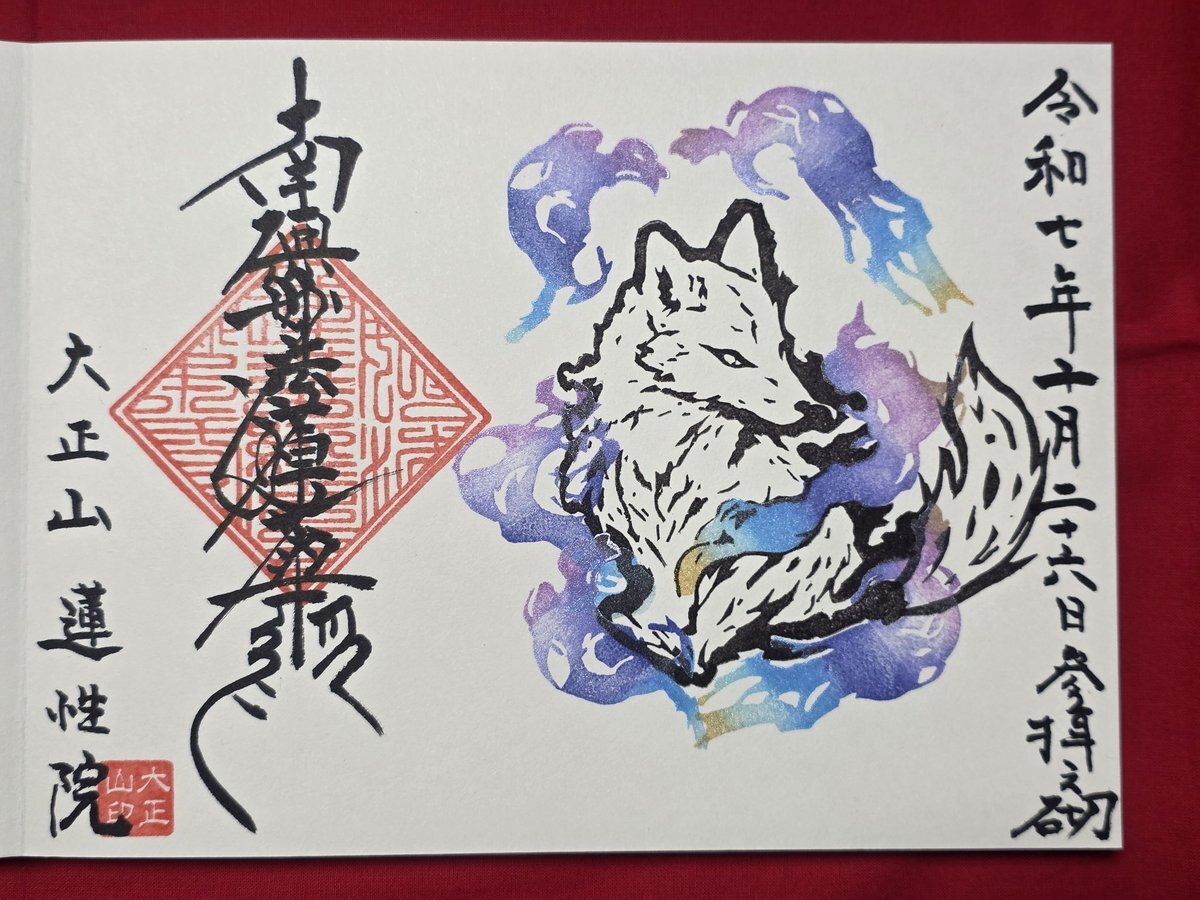 令和七年十月二十六日 参拝之砌
南無妙法蓮華經
大正山 蓮性院
大正
山印